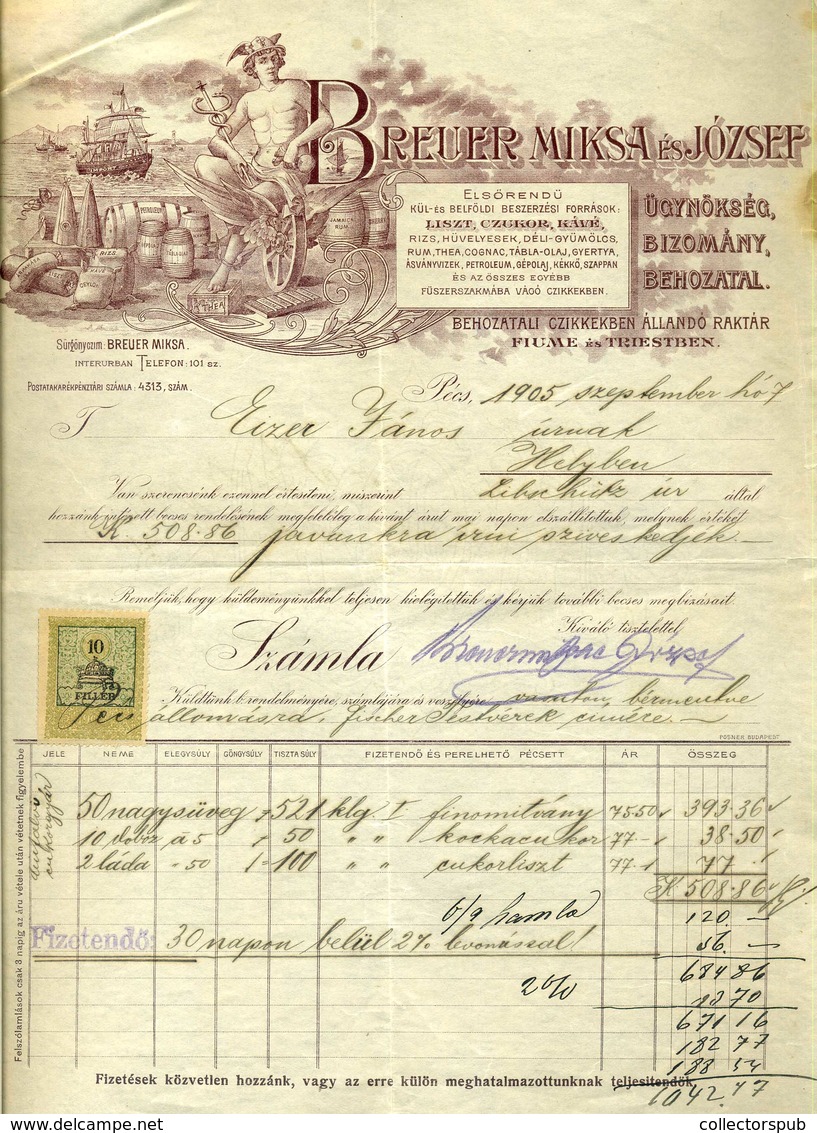 BREUER MIKSA ÉS JÓZSEF
IMPORT
PETROLEUM
JAMAICA RUM
SHERRY
TÁBLA OLAJ
RIZS
KÁVÉ
CEYLON
THEA
ELSŐRENDŰ
KÜL- ÉS BELFÖLDI BESZERZÉSI FORRÁSOK:
LISZT, CZUKOR, KÁVÉ,
RIZS, HÜVELYESEK, DÉLI-GYÜMÖLCS,
RUM, THEA, COGNAC, TÁBLA-OLAJ, GYERTYA,
ÁSVÁNYVIZEK, PETROLEUM, GÉPOLAJ, KÉKKŐ, SZAPPAN
ÉS AZ ÖSSZES EGYÉBB
FÜSZERSZAKMÁBA VÁGÓ CZIKKEKBEN.
ÜGYNÖKSÉG,
BIZOMÁNY,
BEHOZATAL.
BEHOZATALI CZIKKEKBEN ÁLLANDÓ RAKTÁR
FIUME ÉS TRIESTBEN.
Sürgönyczim: BREUER MIKSA.
INTERURBAN TELEFON: 101 SZ.
POSTATAKARÉKPÉNZTÁRI SZÁMLA: 4313, SZÁM.
Pécs, 1905 szeptember hó 7
T Eizer János úrnak
Helyben
Van szerencsénk ezennel értesiteni, miszerint Libschütz úr által
hozzánk intézett becses rendelésének megfelelőleg a kivánt árut mai napon elszállitottuk, melynek értékét
K. 508.86 javunkra irni sziveskedjék.
Reméljük, hogy küldeményünkkel teljesen kielégitettük és kérjük további becses megbizásait.
Kiváló tisztelettel
Számla
10
FILLÉR
Küldtünk b. rendelményére, számlájára és veszélyére vasuton, bérmentve
Pécs állomásra, Fischer Testvérek cimére.
POSNER BUDAPEST
JELE NEME ELEGYSÚLY GÖNGYSÚLY TISZTA SÚLY FIZETENDŐ ÉS PERELHETŐ PÉCSETT ÁR ÖSSZEG
cukorgyár
50 nagysüveg 521 klg. I finomitvány 75.50 393.36
10 doboz á 5 50 " " kockacukor 77 - 38.50
2 láda " 50 100 " " cukorliszt 77 - 77
K 508.86
120 -
56 -
Fizetendő: 30 napon belül 2% levonással!
684 86
2% 13 70
671 16
182 77
188 54
1042.47
Fizetések közvetlen hozzánk, vagy az erre külön meghatalmazottunknak teljesitendők.
Felszólamlások csak 3 napig az áru vétele után vétetnek figyelembe
collectorspub